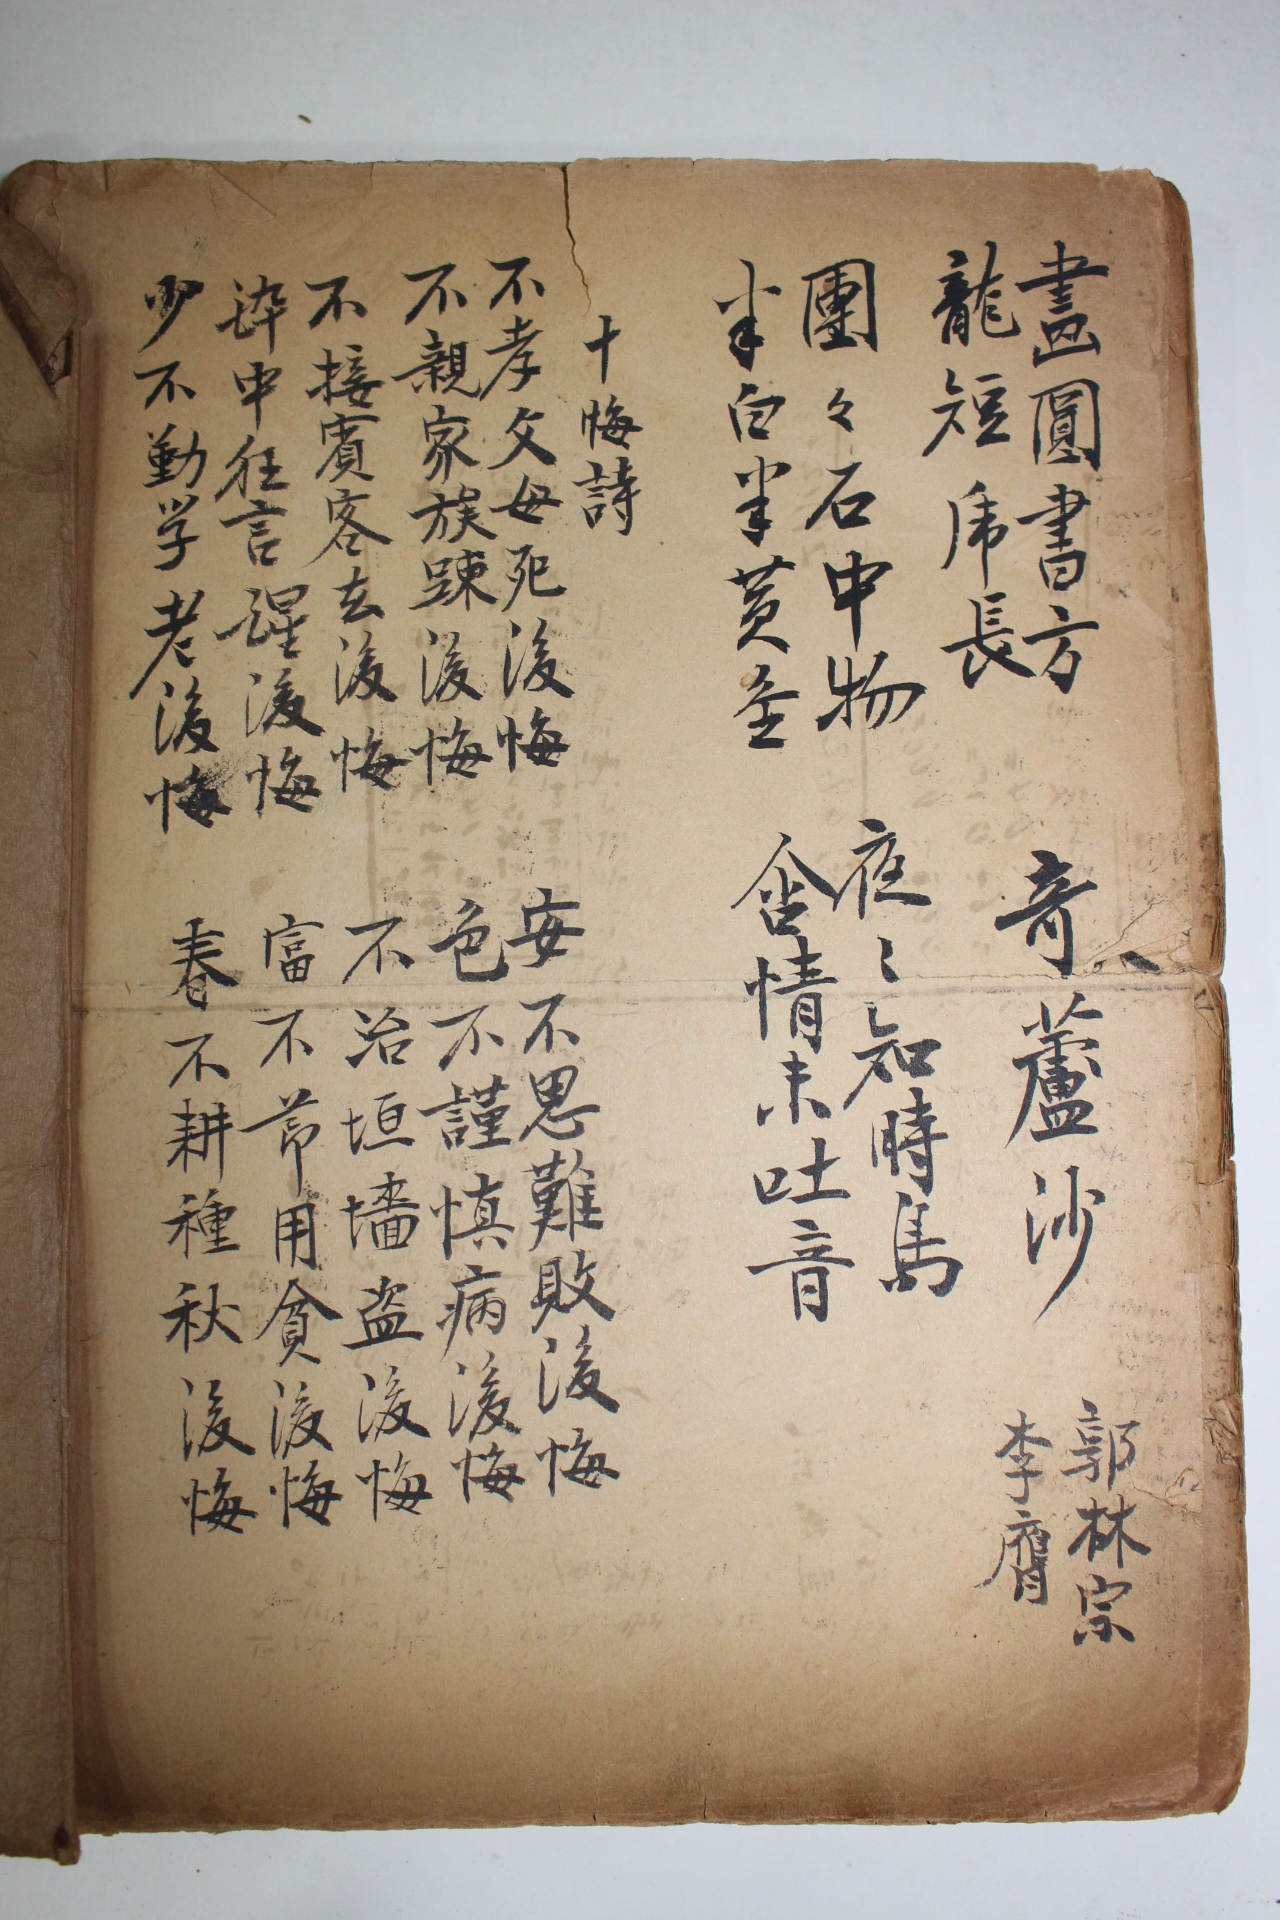 畫圓書方
龍短虎長
奇蘆沙
郭林宗
李膺
團々石中物
半白半黃金
夜〻知時鳥
含情未吐音
十悔詩
不孝父母死後悔
不親家族踈後悔
不接賓客去後悔
酔中狂言醒後悔
少不勤学老後悔
安不思難敗後悔
色不謹慎病後悔
不治垣墻盗後悔
富不節用貧後悔
春不耕種秋後悔